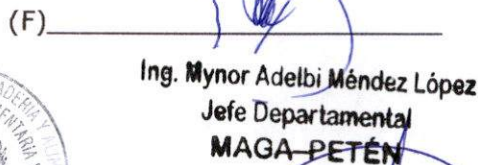 (F)
Ing. Mynor Adelbi Méndez López
Jefe Departamental
MAGA-PETÉN